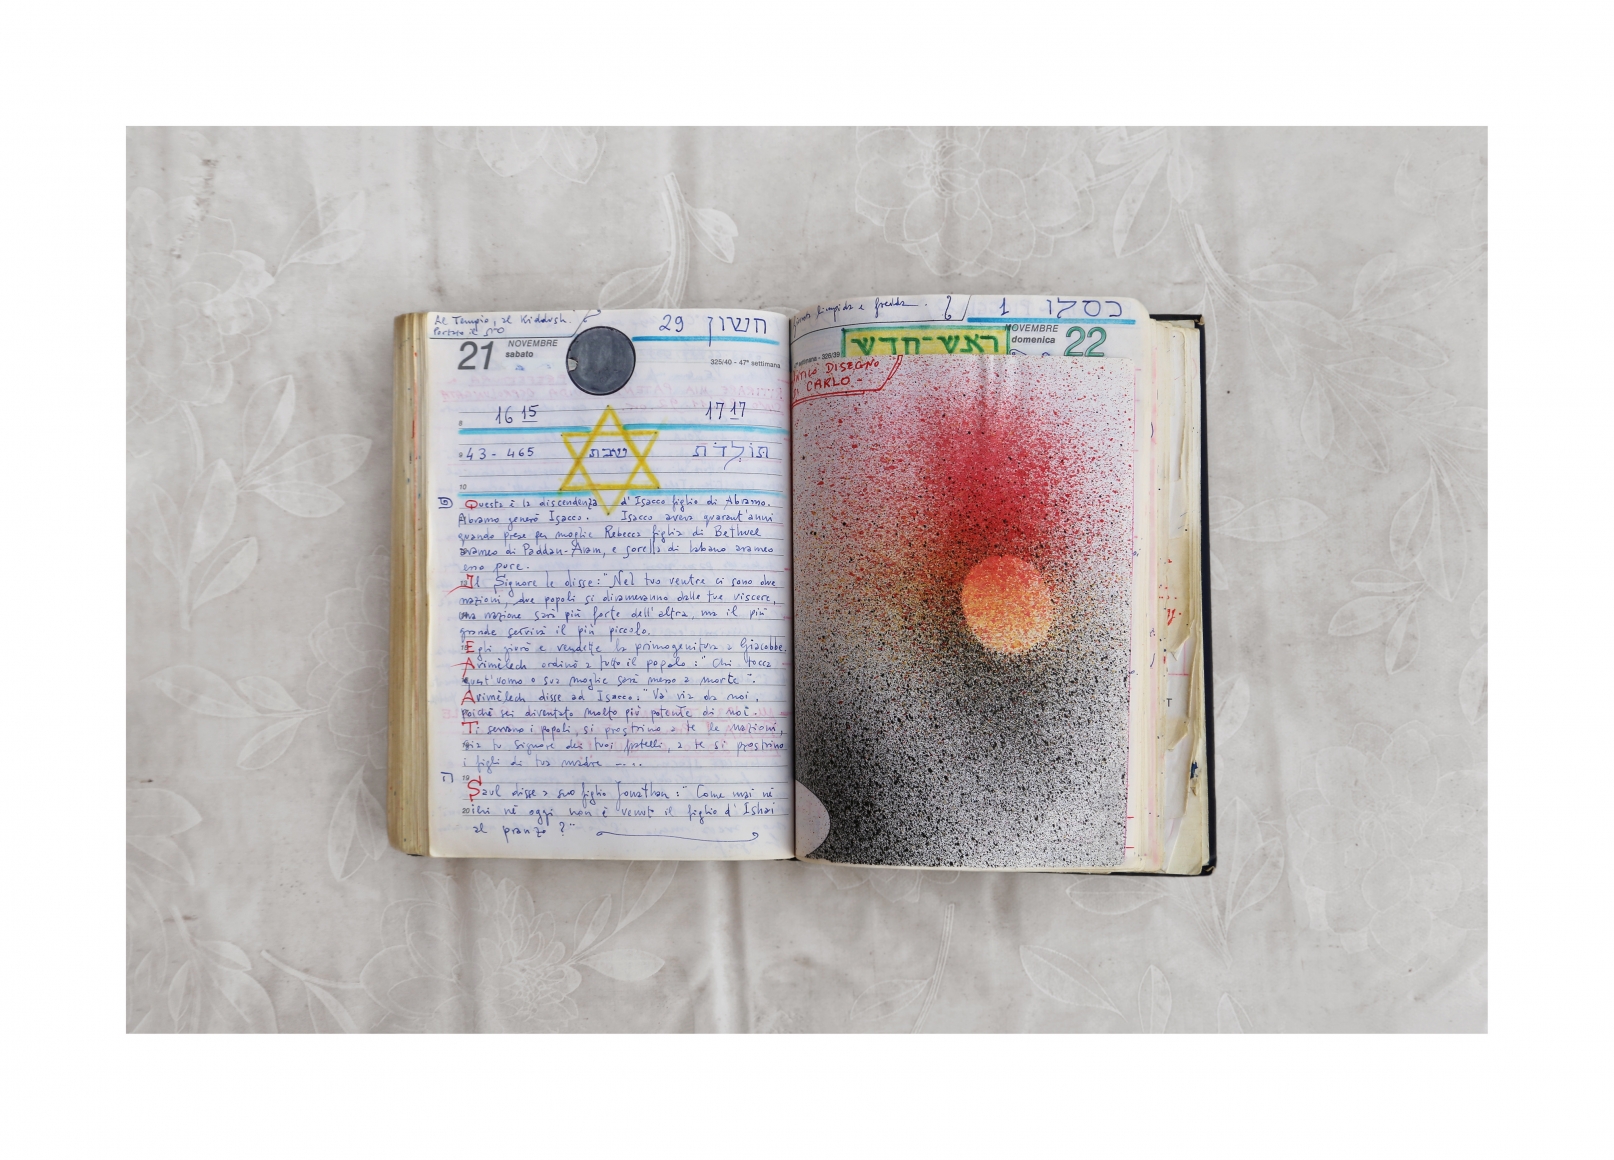 Al Tempio, al Kiddush.
Portato il
29 חשון
21 NOVEMBRE
sabato
325/40 - 47ª settimana
16 15
17 17
8
9 43 - 465
שבת
תולדת
10
פ Questa è la discendenza d'Isacco figlio di Abramo.
Abramo generò Isacco. Isacco aveva quarant'anni
quando prese per moglie Rebecca figlia di Bethuel
arameo di Paddan-Aram, e sorella di Labano arameo
pure.
Il Signore le disse: "Nel tuo ventre ci sono due
nazioni, due popoli si dirameranno dalle tue viscere,
una nazione sarà più forte dell'altra, ma il più
grande servirà il più piccolo.
Egli giurò e vendette la primogenitura a Giacobbe.
Avimèlech ordinò a tutto il popolo: "Chi tocca
quest'uomo o sua moglie sarà messo a morte".
Avimèlech disse ad Isacco: "Va' via da noi,
poiché sei diventato molto più potente di noi.
Ti servano i popoli, si prostrino a te le nazioni,
sia tu signore dei tuoi fratelli, a te si prostrino
i figli di tua madre ....
ה 19
Saul disse a suo figlio Jonathan: "Come mai né
20 ieri né oggi non è venuto il figlio d'Ishai
al pranzo?"
limpida e fredda.
1 כסלו
NOVEMBRE 22
domenica
ראש-חדש
settimana - 326/39
DISEGNO
CARLO -